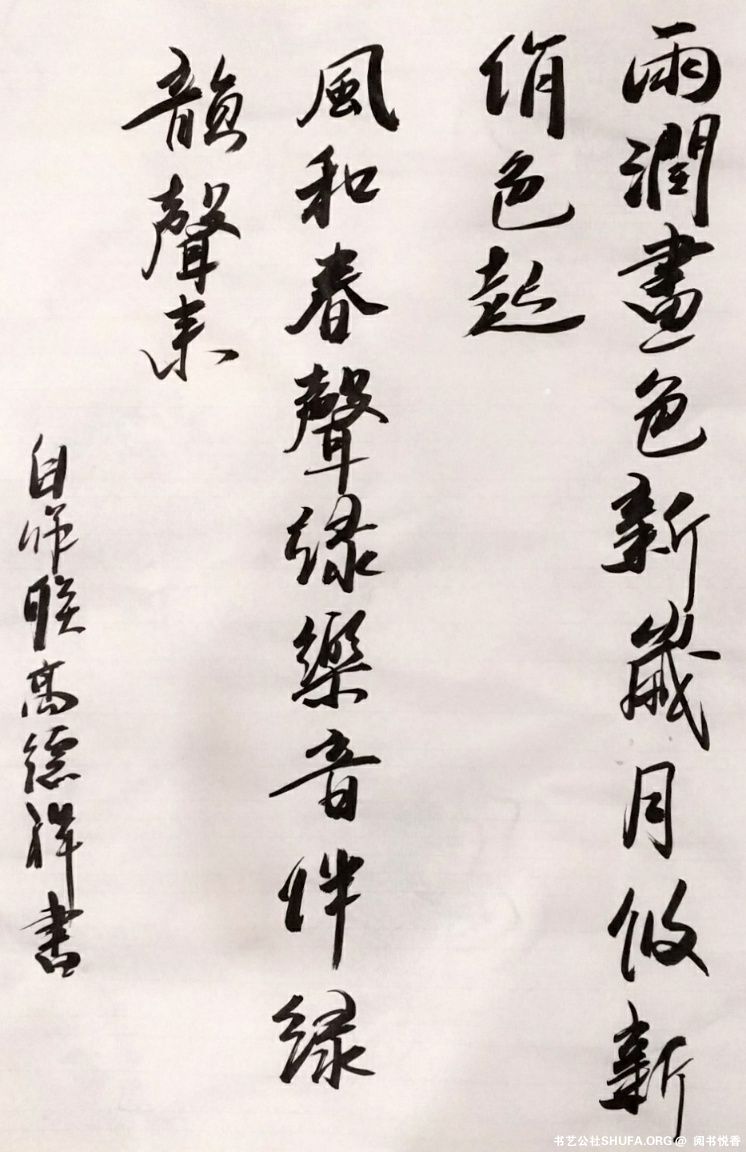 雨潤畫色新歲月攸新
俏色起
風和春聲緑樂音伴緑
韻聲来
自作联高德祥書
书艺公社SHUFA.ORG@ 阅书悦香